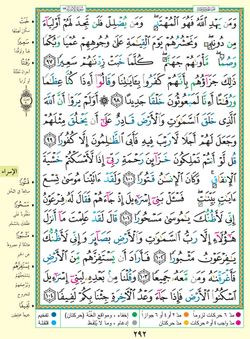 وَمَن يَهْدِ ٱللَّهُ فَهُوَ ٱلْمُهْتَدِ ۖ وَمَن يُضْلِلْ فَلَن تَجِدَ لَهُمْ أَوْلِيَآءَ
مِن دُونِهِۦ ۖ وَنَحْشُرُهُمْ يَوْمَ ٱلْقِيَٰمَةِ عَلَىٰ وُجُوهِهِمْ عُمْيًا وَبُكْمًا
وَصُمًّا ۖ مَّأْوَىٰهُمْ جَهَنَّمُ ۖ كُلَّمَا خَبَتْ زِدْنَٰهُمْ سَعِيرًا ٩٧
ذَٰلِكَ جَزَآؤُهُم بِأَنَّهُمْ كَفَرُوا۟ بِـَٔايَٰتِنَا وَقَالُوٓا۟ أَءِذَا كُنَّا عِظَٰمًا
وَرُفَٰتًا أَءِنَّا لَمَبْعُوثُونَ خَلْقًا جَدِيدًا ٩٨ أَوَلَمْ يَرَوْا۟ أَنَّ ٱللَّهَ
ٱلَّذِى خَلَقَ ٱلسَّمَٰوَٰتِ وَٱلْأَرْضَ قَادِرٌ عَلَىٰٓ أَن يَخْلُقَ مِثْلَهُمْ
وَجَعَلَ لَهُمْ أَجَلًا لَّا رَيْبَ فِيهِ فَأَبَى ٱلظَّٰلِمُونَ إِلَّا كُفُورًا ٩٩
قُل لَّوْ أَنتُمْ تَمْلِكُونَ خَزَآئِنَ رَحْمَةِ رَبِّىٓ إِذًا لَّأَمْسَكْتُمْ خَشْيَةَ
ٱلْإِنفَاقِ ۚ وَكَانَ ٱلْإِنسَٰنُ قَتُورًا ١٠٠ وَلَقَدْ ءَاتَيْنَا مُوسَىٰ تِسْعَ
ءَايَٰتٍۭ بَيِّنَٰتٍ ۖ فَسْـَٔلْ بَنِىٓ إِسْرَٰٓءِيلَ إِذْ جَآءَهُمْ فَقَالَ لَهُۥ فِرْعَوْنُ
إِنِّى لَأَظُنُّكَ يَٰمُوسَىٰ مَسْحُورًا ١٠١ قَالَ لَقَدْ عَلِمْتَ مَآ أَنزَلَ
هَٰٓؤُلَآءِ إِلَّا رَبُّ ٱلسَّمَٰوَٰتِ وَٱلْأَرْضِ بَصَآئِرَ وَإِنِّى
لَأَظُنُّكَ يَٰفِرْعَوْنُ مَثْبُورًا ١٠٢ فَأَرَادَ أَن يَسْتَفِزَّهُم مِّنَ
ٱلْأَرْضِ فَأَغْرَقْنَٰهُ وَمَن مَّعَهُۥ جَمِيعًا ١٠٣ وَقُلْنَا مِنۢ بَعْدِهِۦ لِبَنِىٓ إِسْرَٰٓءِيلَ
ٱسْكُنُوا۟ ٱلْأَرْضَ فَإِذَا جَآءَ وَعْدُ ٱلْءَاخِرَةِ جِئْنَا بِكُمْ لَفِيفًا ١٠٤
الإسراء
٢٩٢